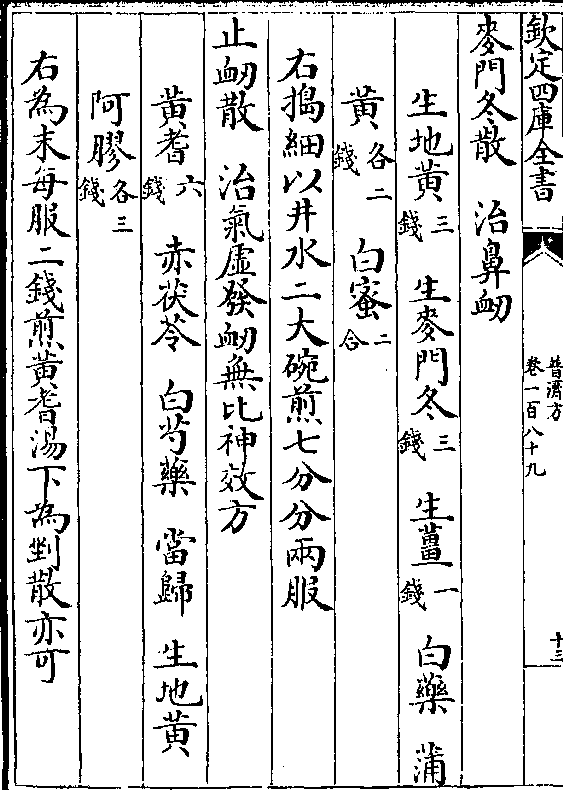 欽定四庫全書
普濟方
卷一百八十九
十三
麥門冬散　治鼻衂
生地黄三錢　生麥門冬三錢　生薑一錢　白藥　蒲
黄各二錢　白蜜二合
右搗細以井水二大碗煎七分分兩服
止衂散　治氣虛發衂無比神效方
黄耆六錢　赤茯苓　白芍藥　當歸　生地黄
阿膠各三錢
右為末每服二錢煎黄耆湯下為剉散亦可